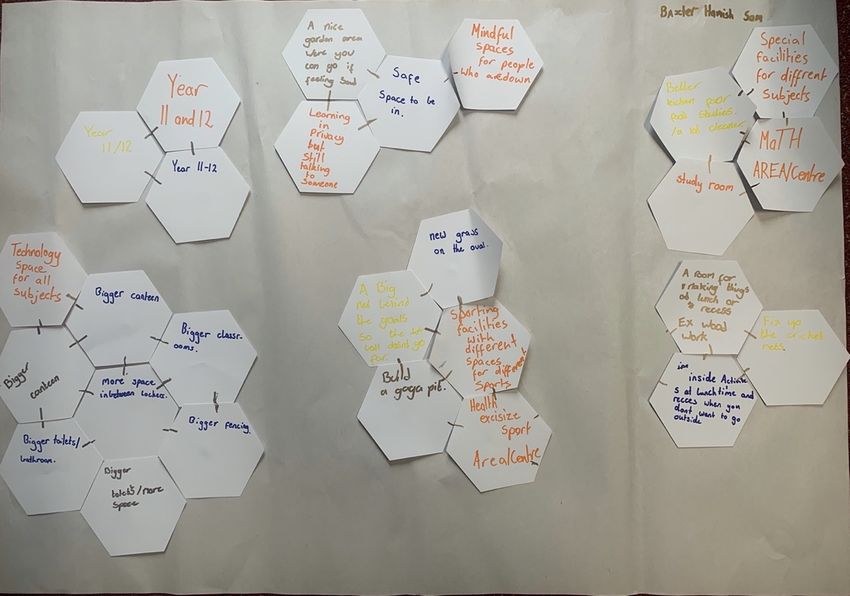 Baxter Hamish Sam
Year
11 and 12
Year
11/12
Year 11-12
A nice
garden area
were you
can go if
feeling Sad
Safe
Space to be
in.
Mindful
spaces
for people
who are down
Learning
in
Privacy
but
Still
talking
to
Someone
Special
facilities
for diffrent
Subjects
Better
kitchen
studies.
cleaner
MaTH
AREA/Centre
Study room
Technology
Space
for all
subjects
Bigger canteen
Bigger classr-
ooms.
Bigger
canteen
More space
inbetween lockers.
Bigger fencing.
Bigger toilets/
bathroom.
Bigger
toilets/more
Space
new grass
on the oval.
A Big
net behind
the goals
So the
ball doint go
far.
Sporting
facilities
with
different
spaces
for different
Sports
Build
a gaga pit.
Health
excisize
sport
Area/Centre
A Room for
making things
at lunch or
recess
Ex wood
work
Fix up
the cricket
nets.
inside Activite
s at lunchtime and
recces when you
dont want to go
outside